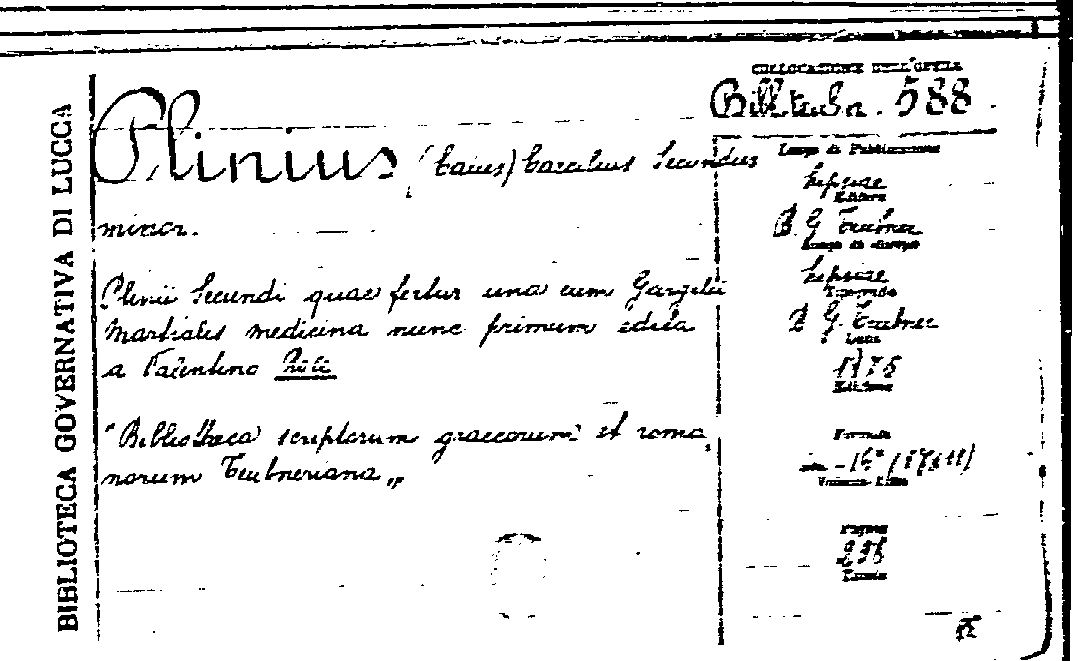 BIBLIOTECA GOVERNATIVA DI LUCCA
COLLOCAZIONE DELL'OPERA
Bibl. teubn. 588
Plinius (Caius) Caecilius Secundus
minor.
Plinii Secundi quae fertur una cum Gargilii
Martialis medicina nunc primum edita
a Valentino Rose
"Bibliotheca scriptorum graecorum et roma
norum Teubneriana"
Luogo di Pubblicazione
Lipsiae
Editore
B. G. Teubner
Luogo di stampa
Lipsiae
Tipografo
B. G. Teubner
Data
1875
Edizione
Formato
in-16°
Pagine